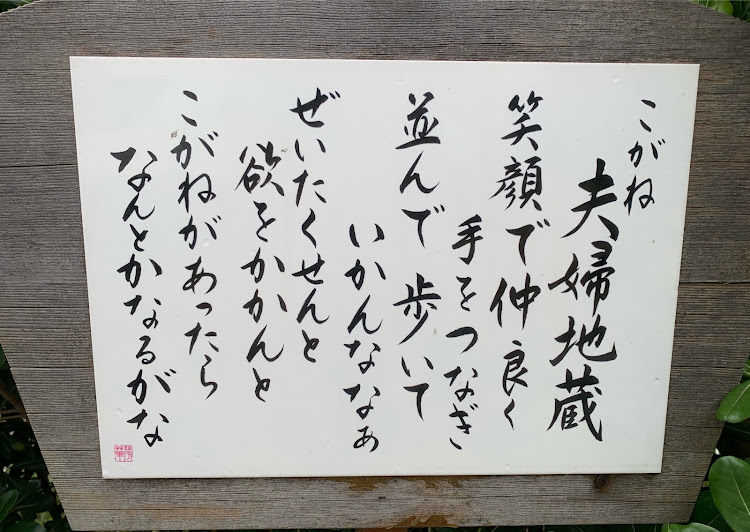 こがね
夫婦地蔵
笑顔で仲良く
手をつなぎ
並んで歩いて
いかんなぁ
ぜいたくせんと
欲をかかんと
こがねがあったら
なんとかなるがな